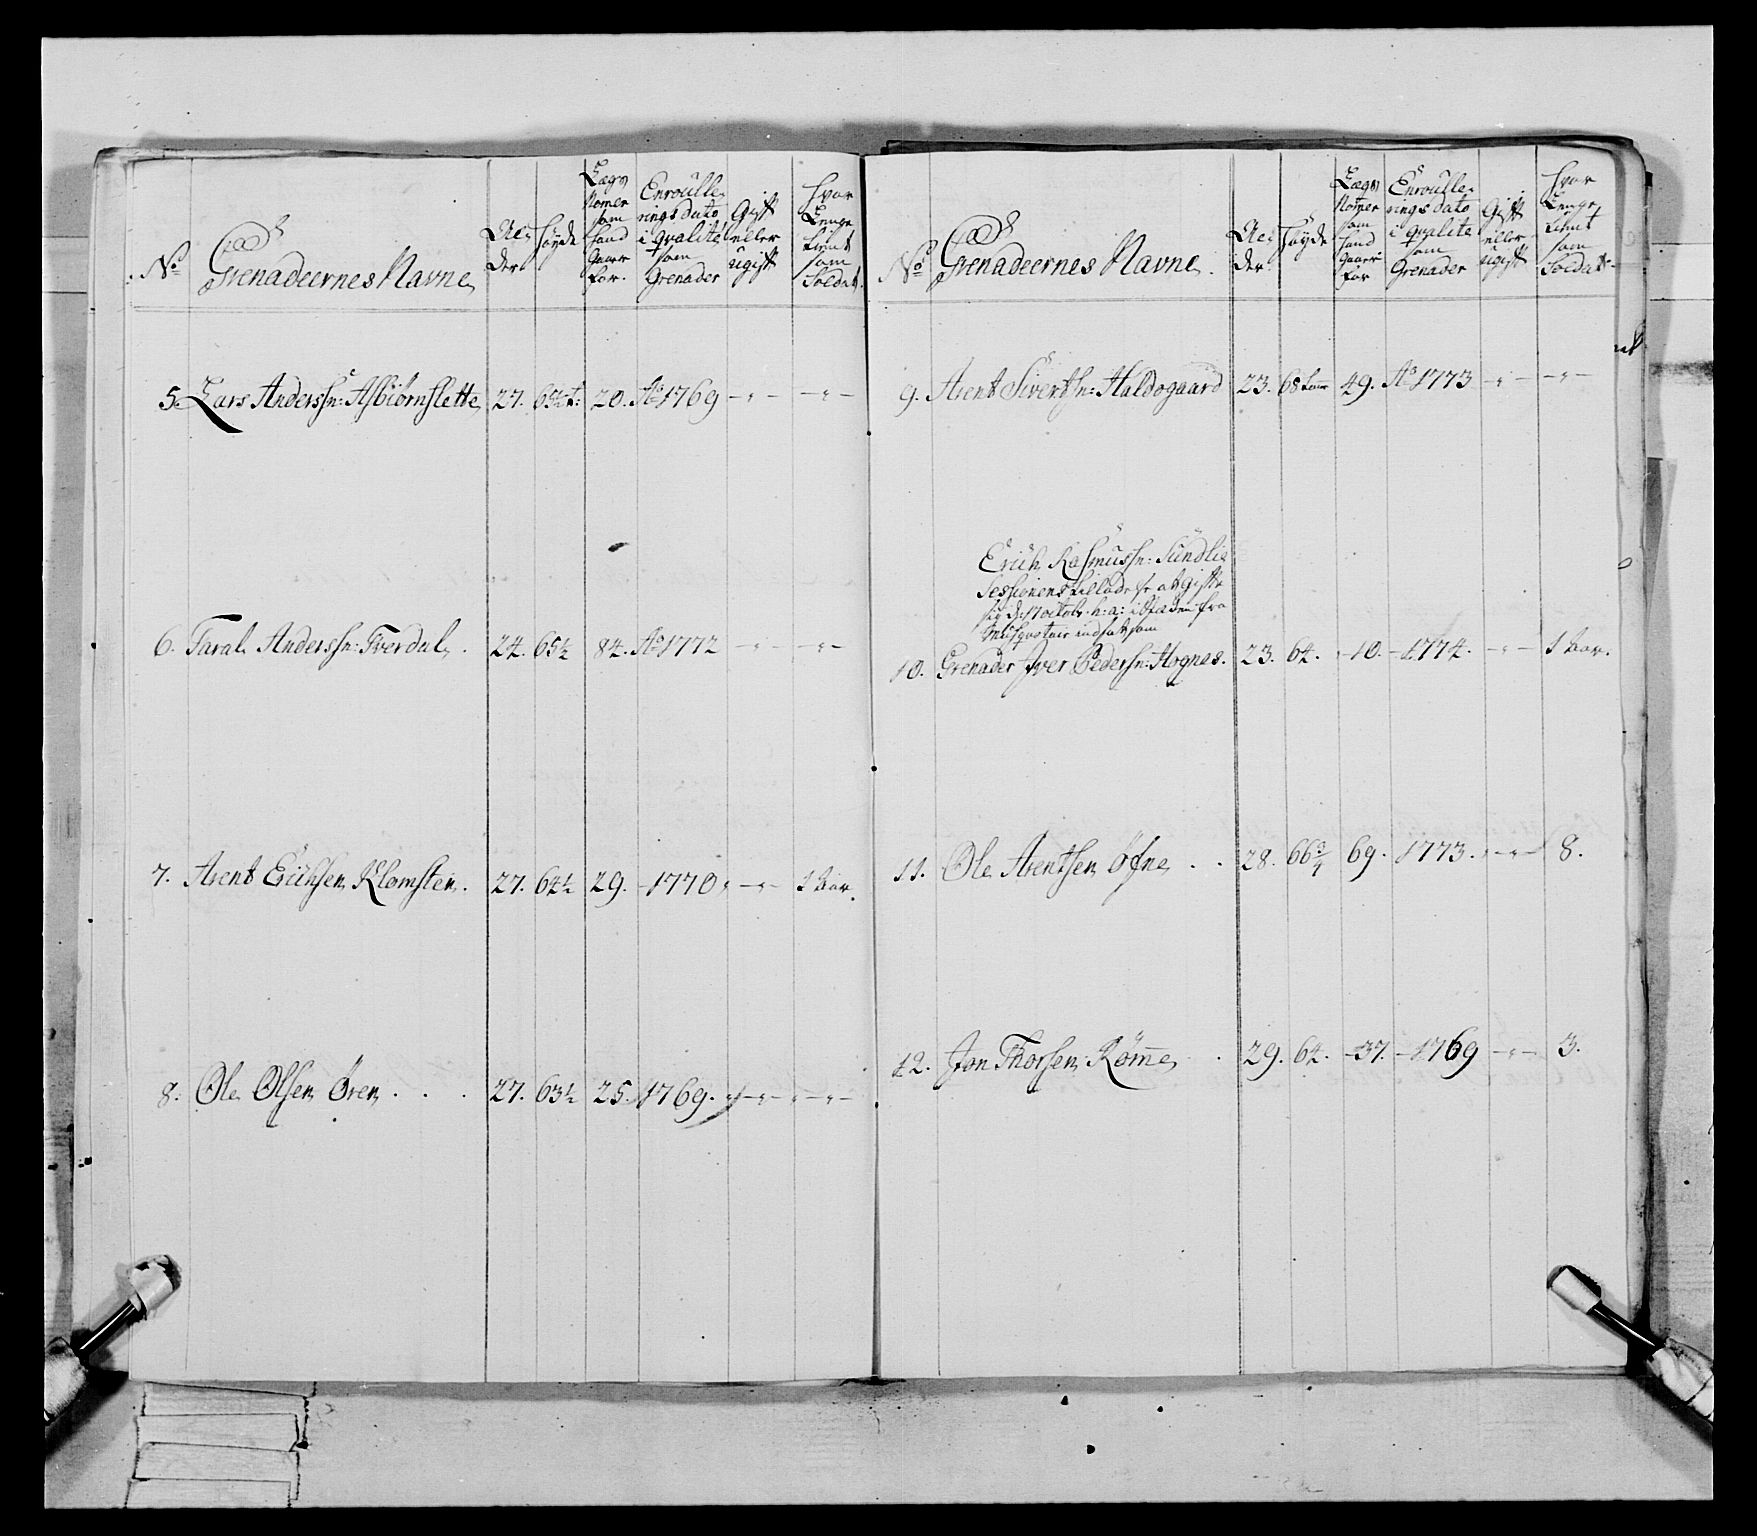 No
Grenadeernes Navne
Al:
der
Høyde
Lægs
Nomer
som
hand
staar
for.
Enroulle
rings dato
i qvalité
som
Grenader
Gift
eller
ugift
Hvor
Lenge
tient
som
Soldat.
5. Lars Anderssn: Asbiørnslette 27. 20. Ao 1769 - " - - " -
6. Taral Anderssn: Tverdal. 24. 65½ 84. Ao 1772 - " - - " -
7. Arent Erichsen Klomsten. 27. 64½ 29. - 1770 " - " - 1 Aar.
8. Ole Olsen Øren . . . 27. 63½ 25. 1769. " - " - " - " -
No
Grenadeernes Navne.
Al:
der
Høyde
Lægs
Nomer
som
hand
staar
for
Enroulle
rings dato
i qvalite
som
Grenader
Gift
eller
ugift
Hvor
Lenge
tient
som
Soldat.
9. Arent Sivertsn: Haldogaard 23. 68 49. Ao 1773 - " - - " -
Erich Rasmussn: Sundlie
Sessionens tillade at gifte
sig d: 17 octobr. h: a: i Steden fra
Musqvoteur indsat som
10. Grenader Iver Pedersn: Hognas. 23. 64. - 10. - 1774. - " - 1 Aar.
11. Ole Arentsen Øfne . . 28. 66¾ 69. - 1773. " - " - 8.
12. Jon Thorsen Röme . 29. 64. - 37. - 1769 - " - 3.